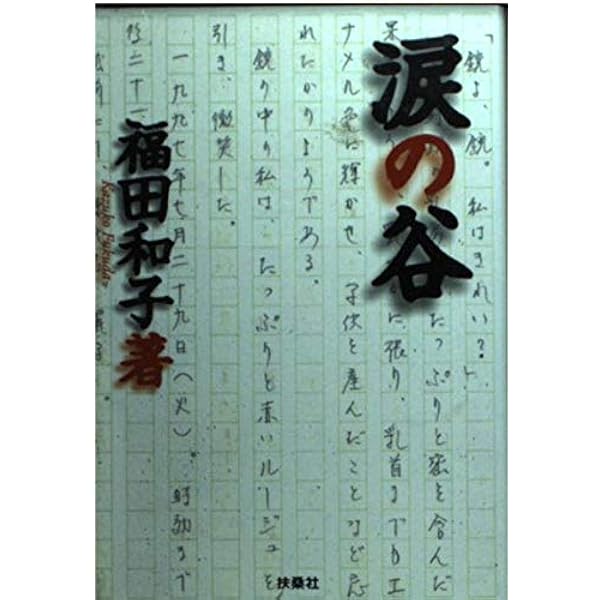 涙の谷
「鏡よ、鏡。私はきれい?」
たっぷりと蜜を含んだ
果 に張り、乳首までもエ
ナメル色に輝かせ、子供を産んだことなど忘
れたかのようである。
鏡の中の私は、たっぷりと赤いルージュを
引き、微笑した。
一九九七年七月二十九日(火)、時効まで
後二十一
福田和子著
Kazuko Fukuda
扶桑社